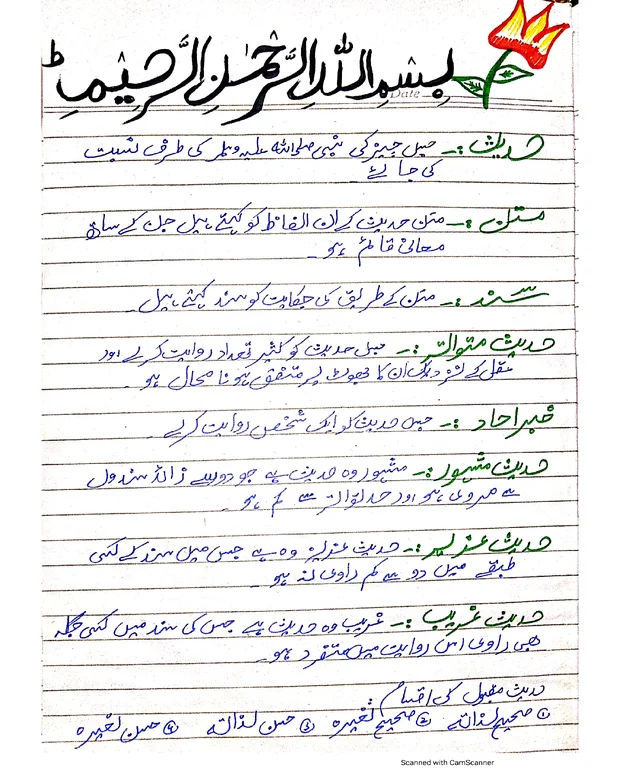 بسم اللہ الرحمٰن الرحیم
Date
حدیث :۔ جس چیز کی نبی صلی اللہ علیہ وسلم کی طرف نسبت
کی جائے۔
متن :۔ متن حدیث کے ان الفاظ کو کہتے ہیں جن کے ساتھ
معانی قائم ہو۔
سند :۔ متن کے طریق کی حکایت کو سند کہتے ہیں۔
حدیث متواتر :۔ جس حدیث کو کثیر تعداد روایت کرے اور
عقل کے نزدیک ان کا جھوٹ پر متفق ہونا محال ہو۔
خبر احاد :۔ جس حدیث کو ایک شخص روایت کرے۔
حدیث مشہور :۔ مشہور وہ حدیث ہے جو دو سے زائد سندوں
سے مروی ہو اور حد تواتر سے کم ہو۔
حدیث عزیز :۔ حدیث عزیز وہ ہے جس میں سند کے کسی
طبقے میں دو سے کم راوی نہ ہو۔
حدیث غریب :۔ غریب وہ حدیث ہے جس کی سند میں کسی جگہ
بھی راوی اس روایت میں متفرد ہو۔
حدیث مقبول کی اقسام :
① صحیح لذاتہ ② صحیح لغیرہ ③ حسن لذاتہ ④ حسن لغیرہ
Scanned with CamScanner